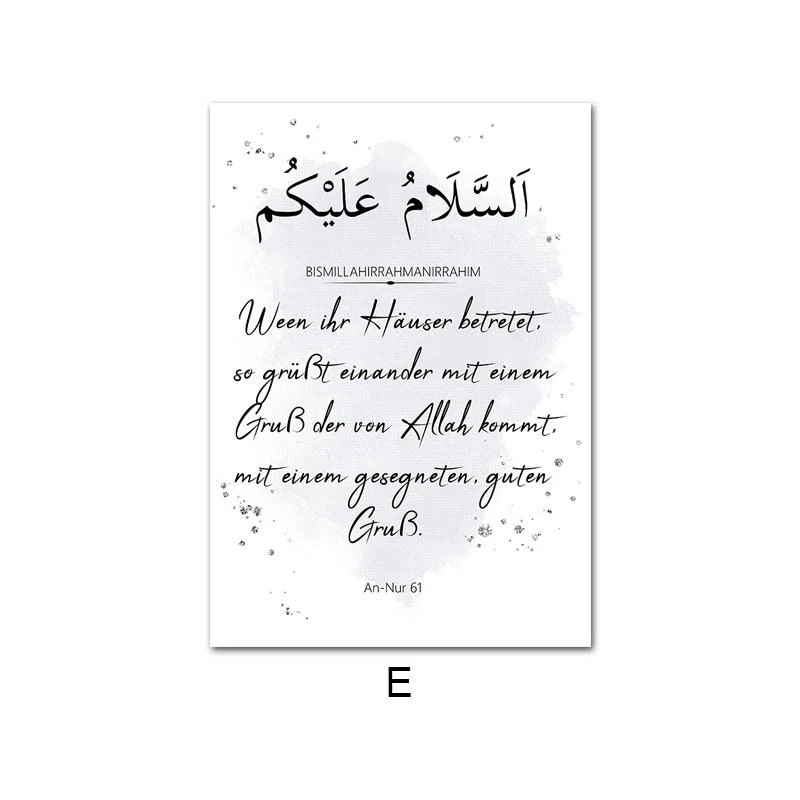 اَلسَّلَامُ عَلَيْكُم
BISMILLAHIRRAHMANIRRAHIM
Ween ihr Häuser betretet,
so grüßt einander mit einem
Gruß der von Allah kommt,
mit einem gesegneten, guten
Gruß.
An-Nur 61
E